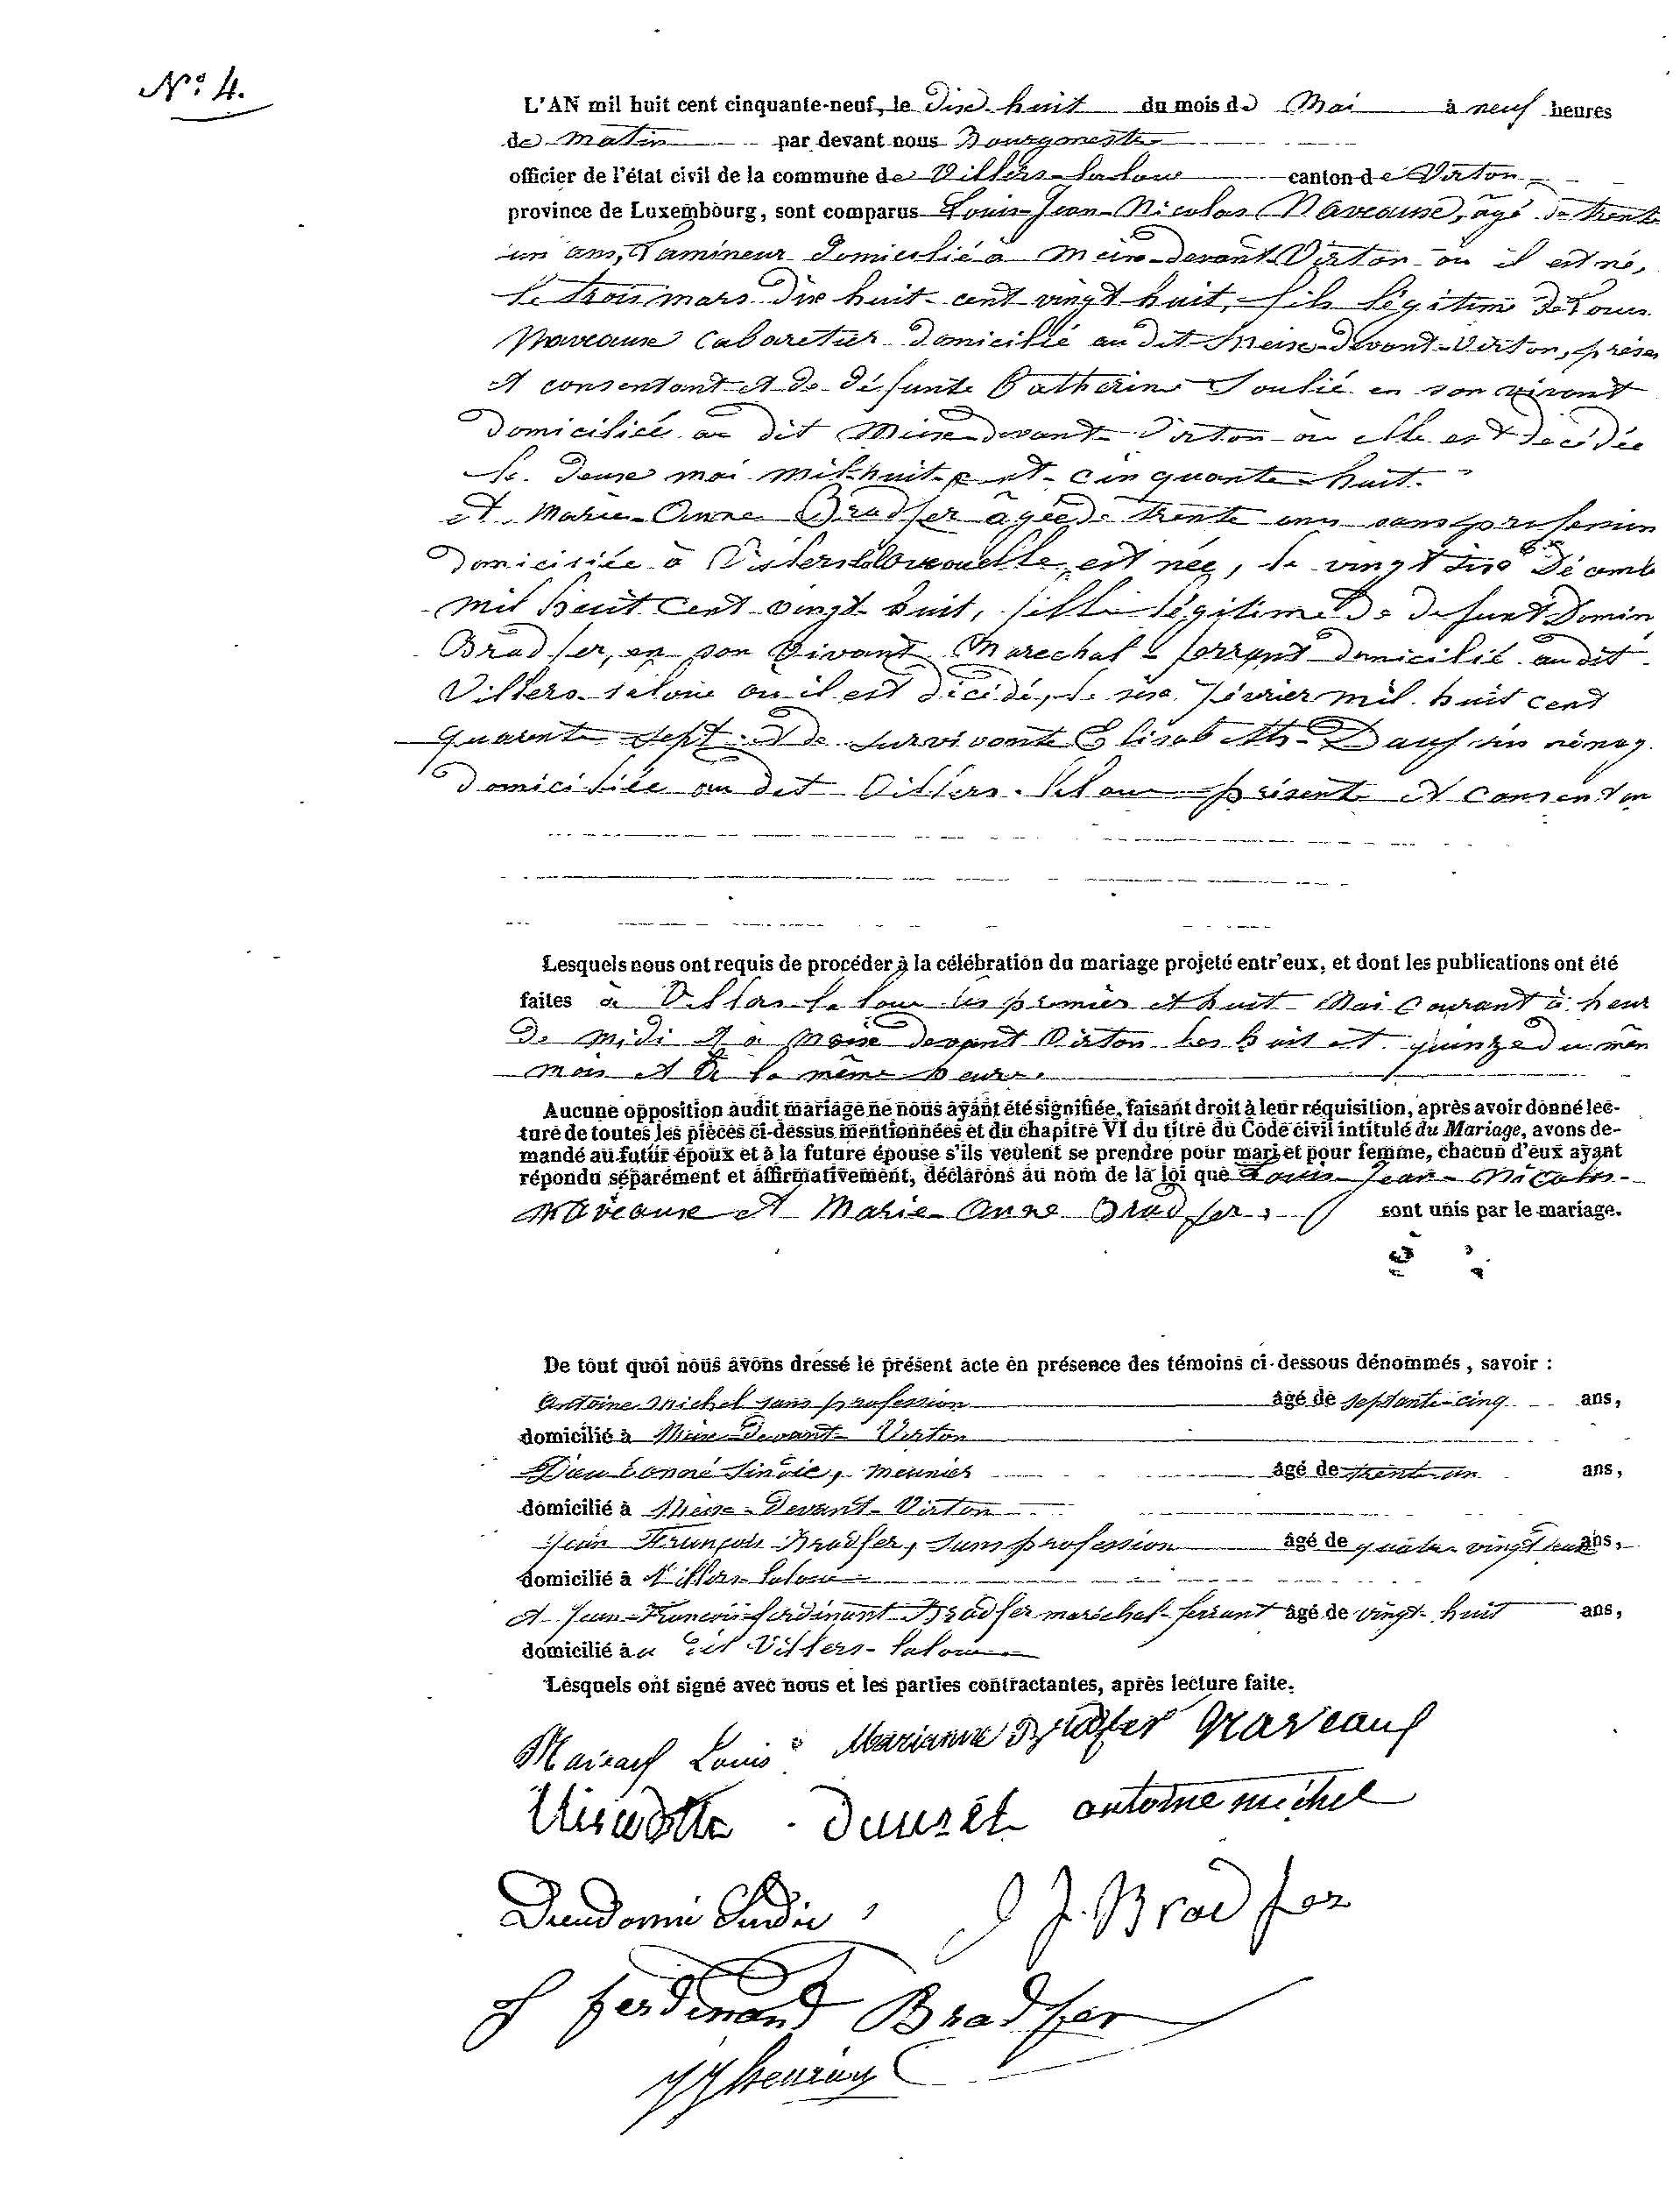 N° 4.
L'AN mil huit cent cinquante-neuf, le dix huit du mois de Mai à neuf heures
de matin par devant nous Bourgmestre
officier de l'état civil de la commune de Villers-laloue canton de Virton
province de Luxembourg, sont comparus Louis-Jean-Nicolas Naveaux, âgé de trente
un ans, domicilié à Meix-devant-Virton où il est né,
le trois mars dix huit cent vingt huit, fils légitime de Louis
Naveaux cabaretier domicilié au dit Meix-devant-Virton, présen
et consentant et de défunte Catherine Soulié en son vivant
domiciliée au dit Meix-devant-Virton où elle est décédée
le deux mai mil-huit-cent-cinquante-huit.
et Marie-Anne Bradfer âgée de trente ans sans profession
domiciliée à Villerslaloue où elle est née, le vingt six Décemb
mil huit cent vingt huit, fille légitime de defunt Domin
Bradfer, en son vivant Marechal-ferrant domicilié au dit
Villers-laloue où il est décédé, le six février mil huit cent
quarante sept et de survivante Elisabeth
domiciliée au dit Villers-laloue présente et consentan
Lesquels nous ont requis de procéder à la célébration du mariage projeté entr'eux, et dont les publications ont été
faites à Villers-laloue les premier et huit Mai courant à heur
de midi et à Meix devant Virton les huit et quinze du mêm
mois et à la même heure.
Aucune opposition audit mariage ne nous ayant été signifiée, faisant droit à leur réquisition, après avoir donné lec-
ture de toutes les pièces ci-dessus mentionnées et du chapitre VI du titre du Code civil intitulé du Mariage, avons de-
mandé au futur époux et à la future épouse s'ils veulent se prendre pour mari et pour femme, chacun d'eux ayant
répondu séparément et affirmativement, déclarons au nom de la loi que Louis-Jean-Nicolas-
Naveaux et Marie-Anne Bradfer, sont unis par le mariage.
De tout quoi nous avons dressé le présent acte en présence des témoins ci-dessous dénommés, savoir :
Antoine Michel sans profession âgé de septante-cinq ans,
domicilié à Meix-Devant-Virton
Dieudonné Sindic, meunier âgé de trente-un ans,
domicilié à Meix-Devant-Virton
Jean François Bradfer, sans profession âgé de quatre vingt ans,
domicilié à Villers-laloue
et Jean-François-ferdinant Bradfer maréchal-ferrant âgé de vingt-huit ans,
domicilié à au dit Villers-laloue
Lesquels ont signé avec nous et les parties contractantes, après lecture faite.
Louis Marianne Bradfer Naveaux
antoine michel
Dieudonné Sindic J. Bradfer
ferdinand Bradfer